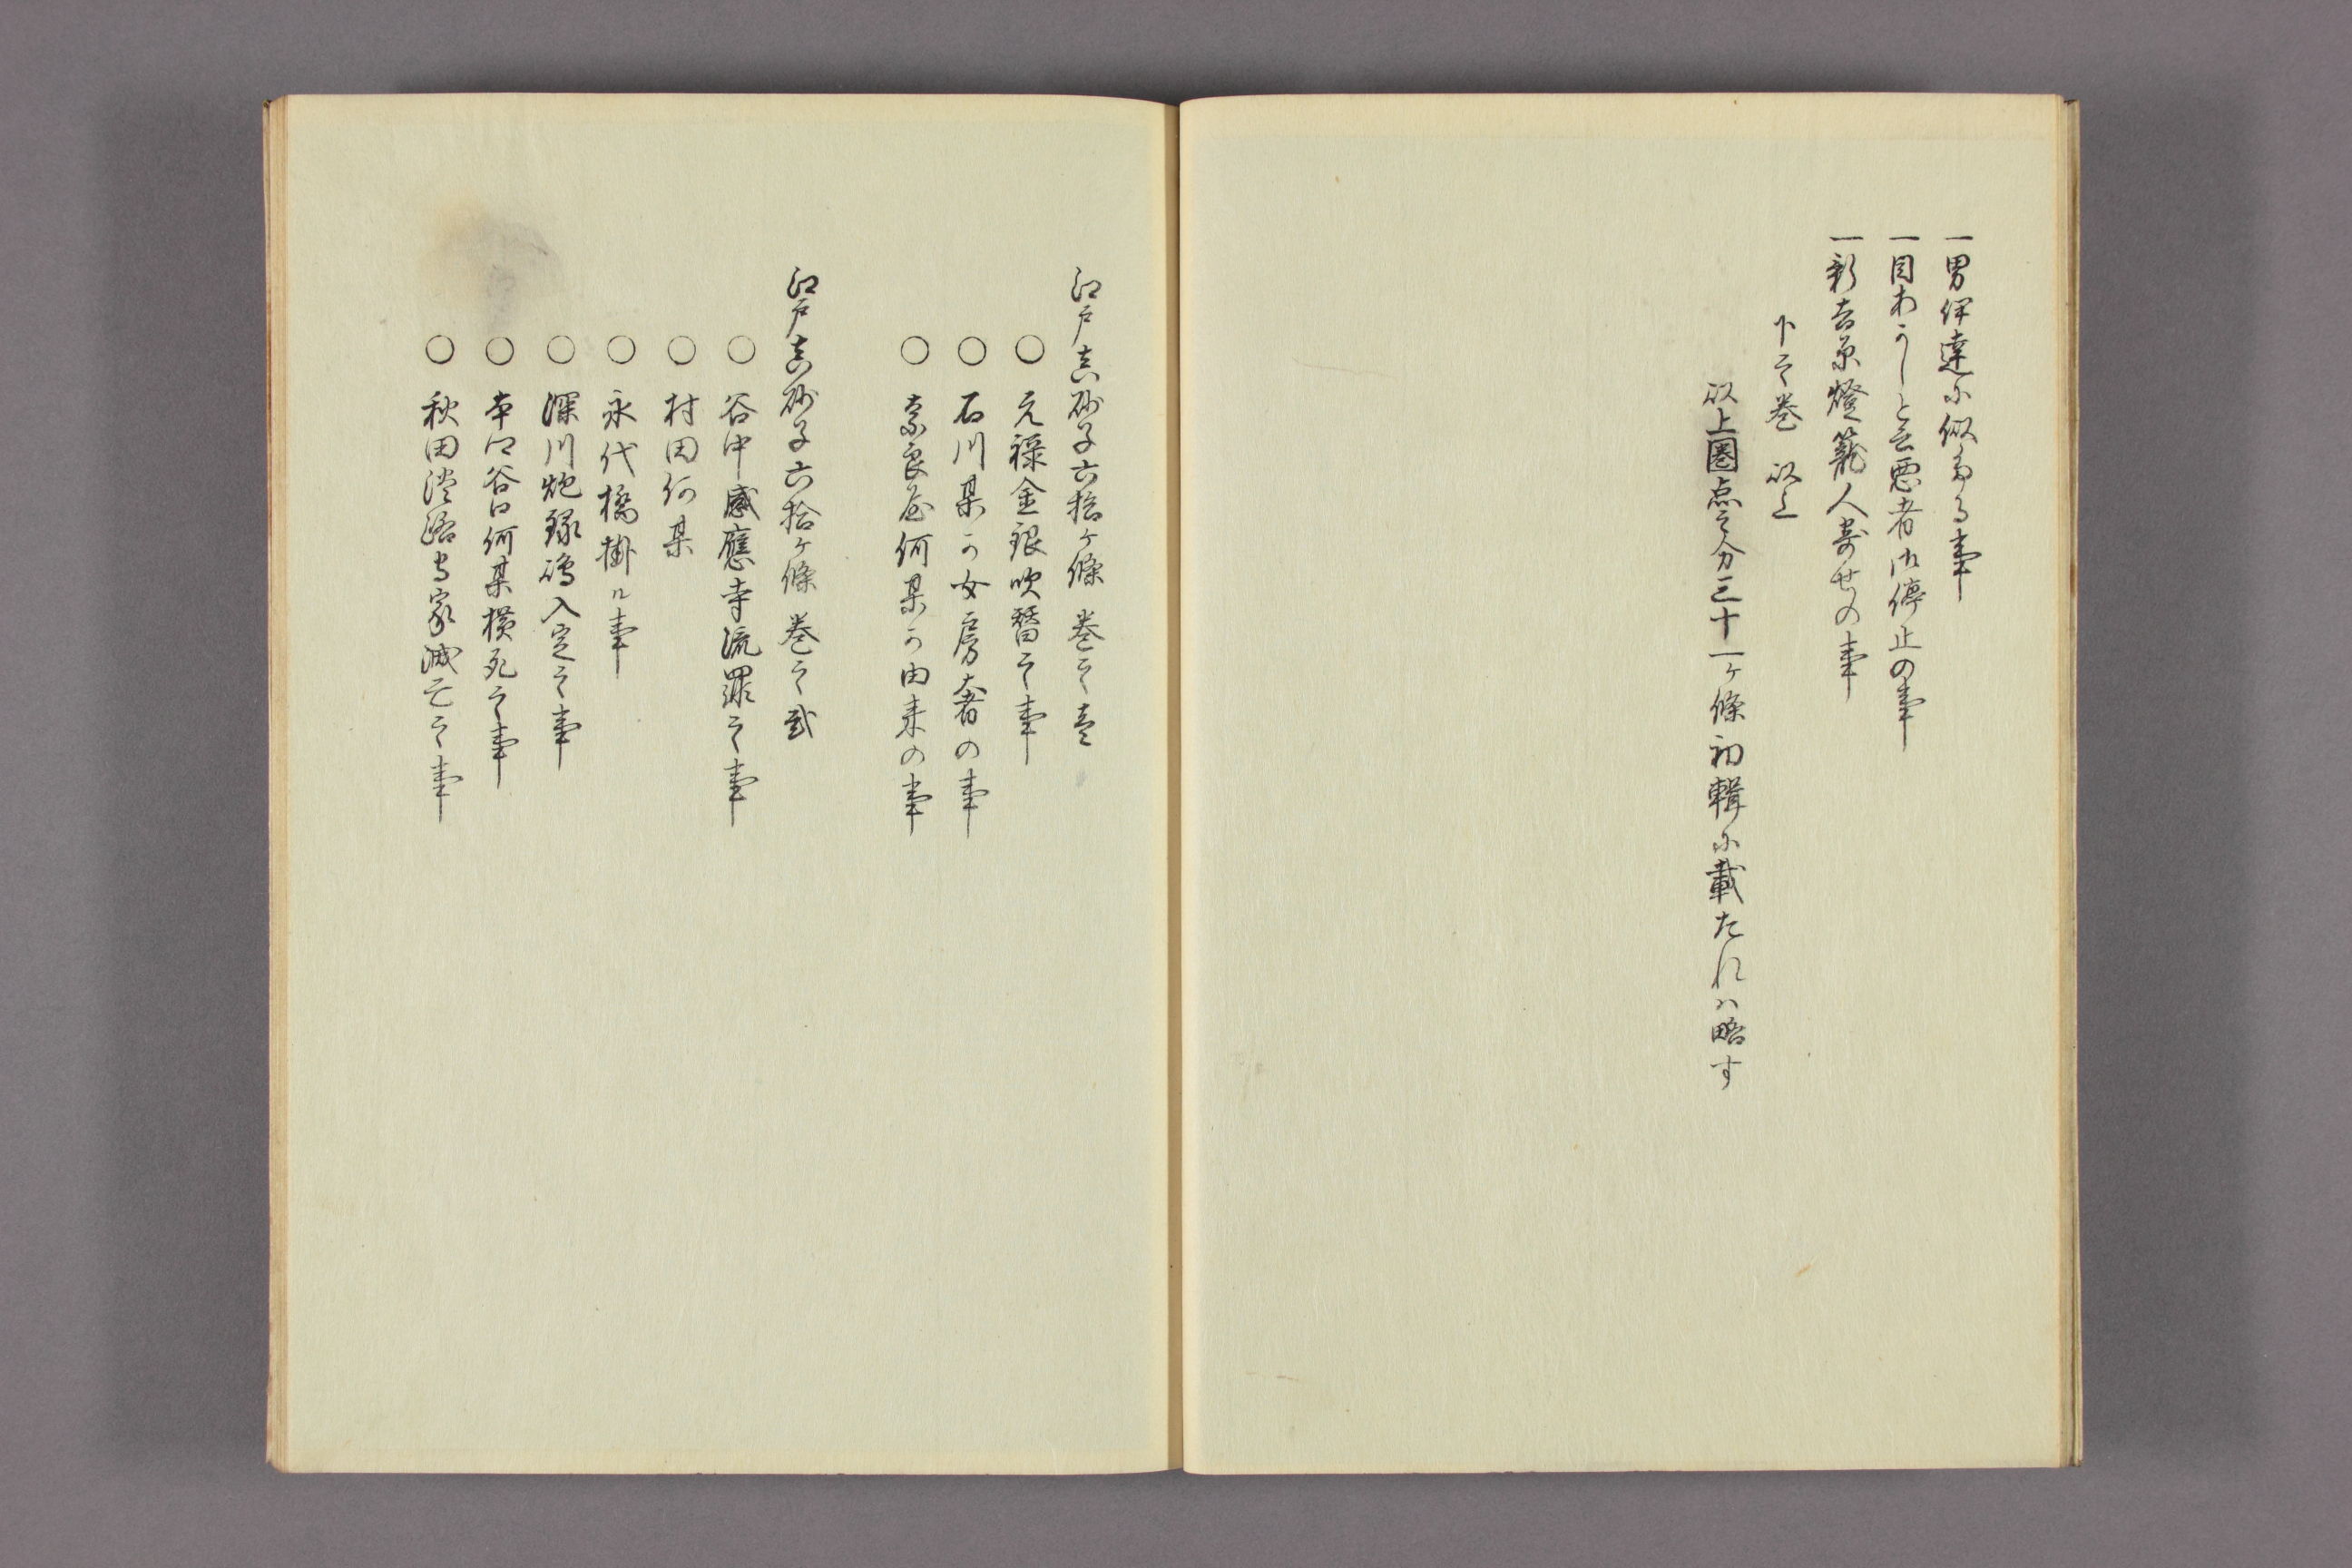 一男伊達に似たる事
一目あかしと云悪者御停止の事
一新吉原燈籠人寄せの事
下之巻 以上
以上圏点之分三十一ヶ條初輯に載たれハ略す
江戸真砂子六拾ヶ條 巻之壱
○ 元禄金銀吹替之事
○ 石川某か女房奢の事
○ 奈良屋何某か由来の事
江戸真砂子六拾ヶ條 巻之弐
○ 谷中感應寺流罪之事
○ 村田何某
○ 永代橋掛ル事
○ 深川炮録嶋入定之事
○ 本口谷口何某横死之事
○ 秋田淡路守家滅亡之事